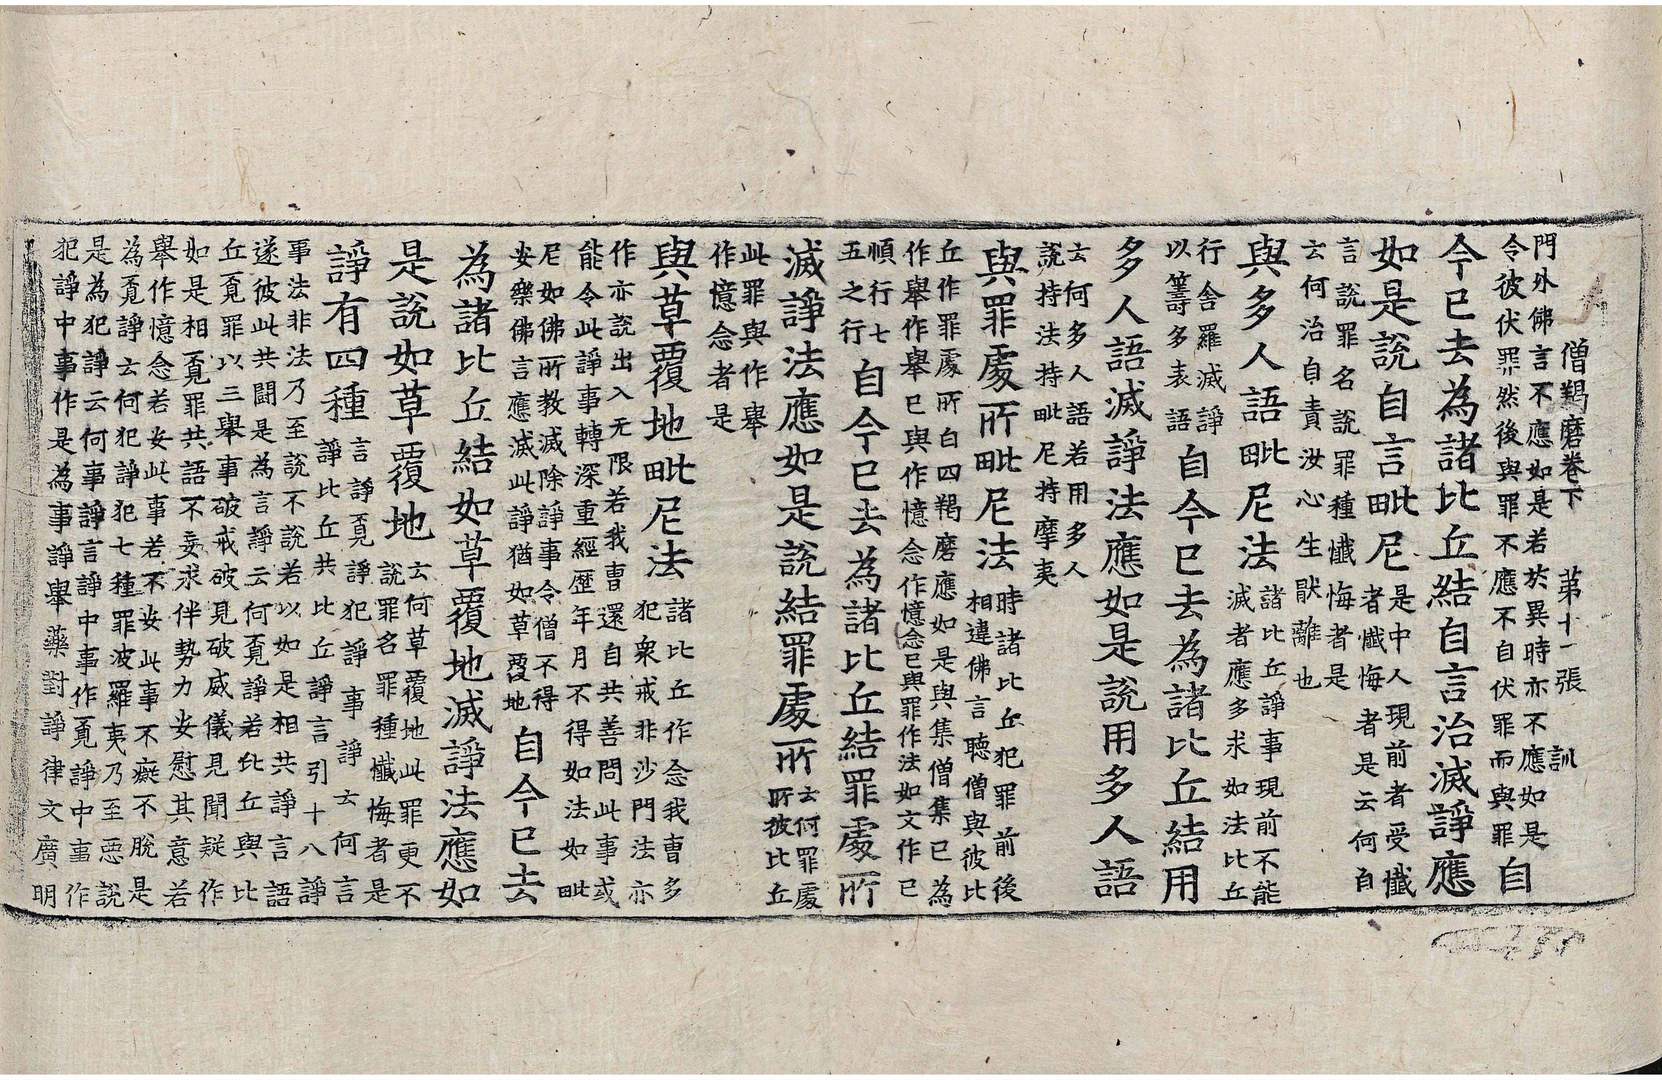 僧羯磨卷下　第十一張　訓
門外佛言不應如是若於異時亦不應如是
令彼伏罪然後與罪不應不自伏罪而與罪自
今已去為諸比丘結自言治滅諍應
如是說自言毗尼是中人現前者受懺
者懺悔者是云何自
言說罪名說罪種懺悔者是
云何治自責汝心生猒離也
與多人語毗尼法諸比丘諍事現前不能
滅者應多求如法比丘
行舍羅滅諍
以籌多表語自今已去為諸比丘結用
多人語滅諍法應如是說用多人語
云何多人語若用多人
說持法持毗尼持摩夷
與罪處所毗尼法時諸比丘犯罪前後
相違佛言聽僧與彼比
丘作罪處所白四羯磨應如是與集僧集已為
作舉作舉已與作憶念作憶念已與罪作法如文作已
順行七
五之行自今已去為諸比丘結罪處所
滅諍法應如是說結罪處所云何罪處
所彼比丘
此罪與作舉
作憶念者是
與草覆地毗尼法諸比丘作念我曹多
犯眾戒非沙門法亦
作亦說出入无限若我曹還自共善問此事或
能令此諍事轉深重經歷年月不得如法如毗
尼如佛所教滅除諍事令僧不得
安樂佛言應滅此諍猶如草覆地自今已去
為諸比丘結如草覆地滅諍法應如
是說如草覆地云何草覆地此罪更不
說罪名罪種懺悔者是
諍有四種言諍覓諍犯諍事諍云何言
諍比丘共比丘諍言引十八諍
事法非法乃至說不說若以如是相共諍言語
遂彼此共鬪是為言諍云何覓諍若比丘與比
丘覓罪以三舉事破戒破見破威儀見聞疑作
如是相覓罪共語不妄求伴勢力安慰其意若
舉作憶念若安此事若不安此事不癡不脫是
為覓諍云何犯諍犯七種罪波羅夷乃至惡說
是為犯諍云何事諍言諍中事作覓諍中事作
犯諍中事作是為事諍舉藥對諍律文廣明